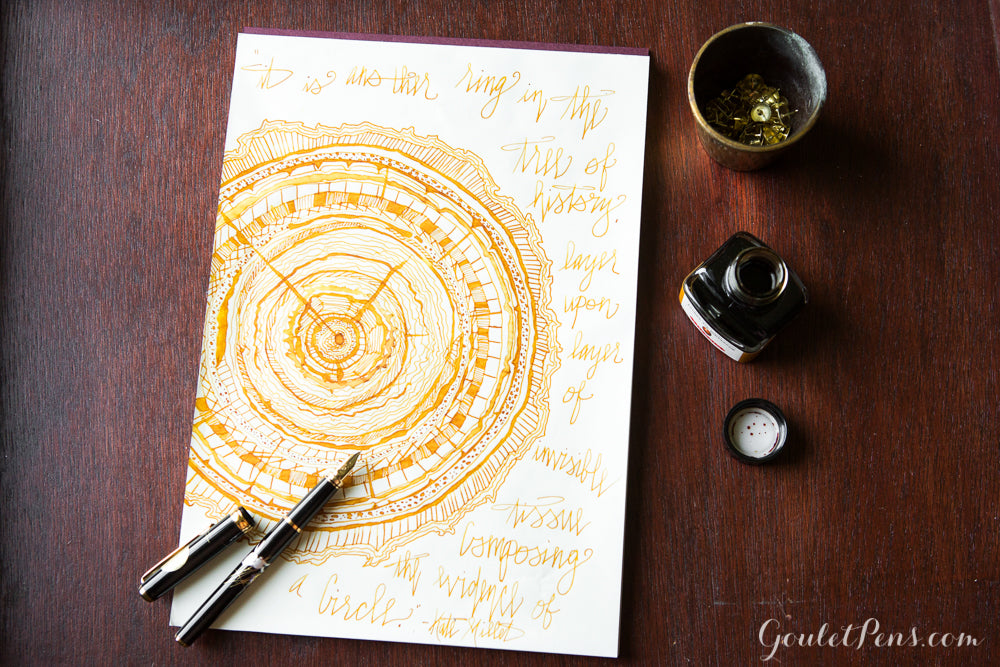 it is another ring in the
tree of
history.
layer
upon
layer
of
invisible
tissue
Composing
the evidence of
a Circle." - Kate Millet
GouletPens.com